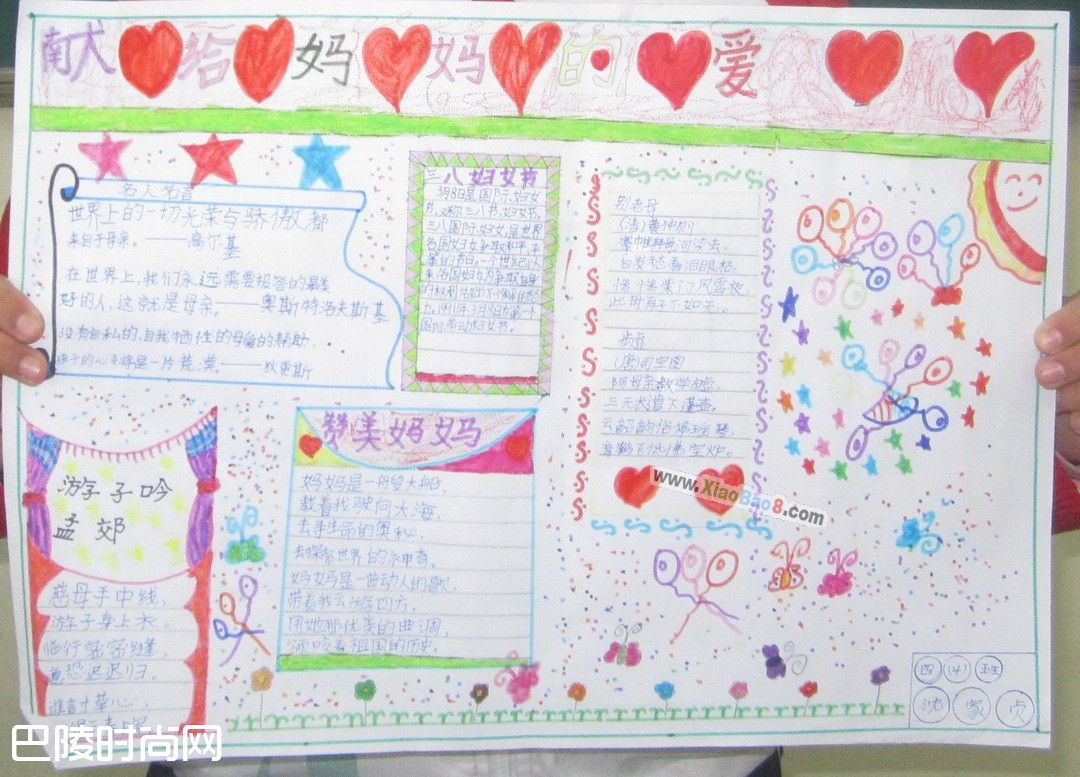 献犬给妈妈的爱
名人名言
世界上的一切光荣与骄傲都
来自于母亲。——高尔基
在世界上,我们永远需要报答的最美
好的人,这就是母亲。——奥斯特洛夫斯基
没有自私的,自我牺牲的母爱的帮助,
孩子的心灵将是一片荒漠。——狄更斯
三八妇女节
3月8日是国际妇女
节,又称三八节,妇女节,
三八国际妇女,是世界
各国妇女争取和平、平
国际劳动妇女节。
别老母
(清)黄仲则
搴帏拜母河梁去,
白发愁看泪眼枯。
惨惨柴门风雪夜,
此时有子不如无。
步虚
(唐)司空图
阿母亲教学步虚,
三元长遣下蓬壶。
云韶韵俗停瑶瑟,
鸾鹤飞低拂宝炉。
www.XiaoBao8.com
游子吟
孟郊
慈母手中线,
游子身上衣。
临行密密缝,
意恐迟迟归。
谁言寸草心,
赞美妈妈
妈妈是一艘大船,
载着我驶向大海,
去寻生命的奥秘,
去探索世界的神奇。
妈妈是一曲动人的歌,
带着我云游四方,
用她那优美的曲调,
颂唱着祖国的历史。
四(4)班
沈家贞
巴陵时尚网